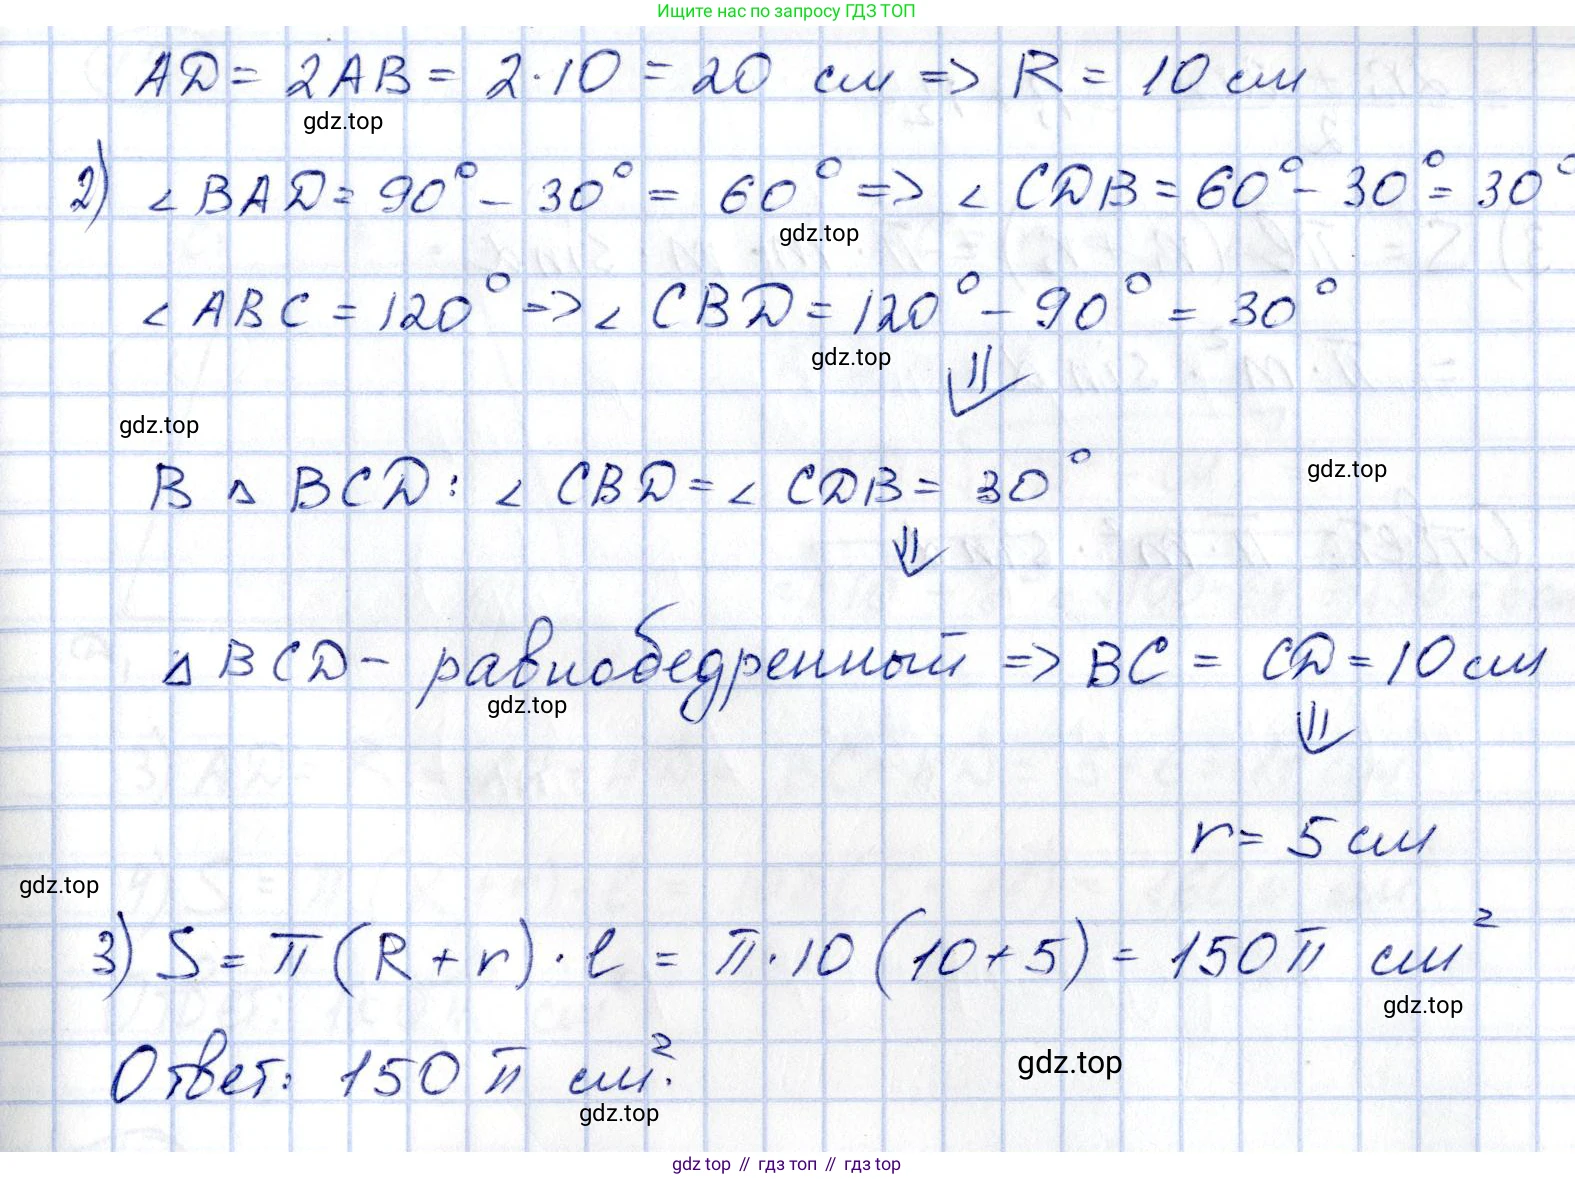 Ищите нас по запросу ГДЗ ТОП
AD = 2AB = 2·10 = 20 см => R = 10 см
gdz.top
2) ∠BAD = 90° - 30° = 60° => ∠CDB = 60° - 30° = 30°
gdz.top
∠ABC = 120° => ∠CBD = 120° - 90° = 30°
gdz.top
⇓
gdz.top
В △BCD: ∠CBD = ∠CDB = 30°
gdz.top
⇓
△BCD - равнобедренный => BC = CD = 10 см
gdz.top
⇓
r = 5 см
gdz.top
3) S = π(R + r)·l = π·10(10+5) = 150π см²
gdz.top
Ответ: 150π см².
gdz.top
gdz.top
gdz top // гдз топ // гдз top